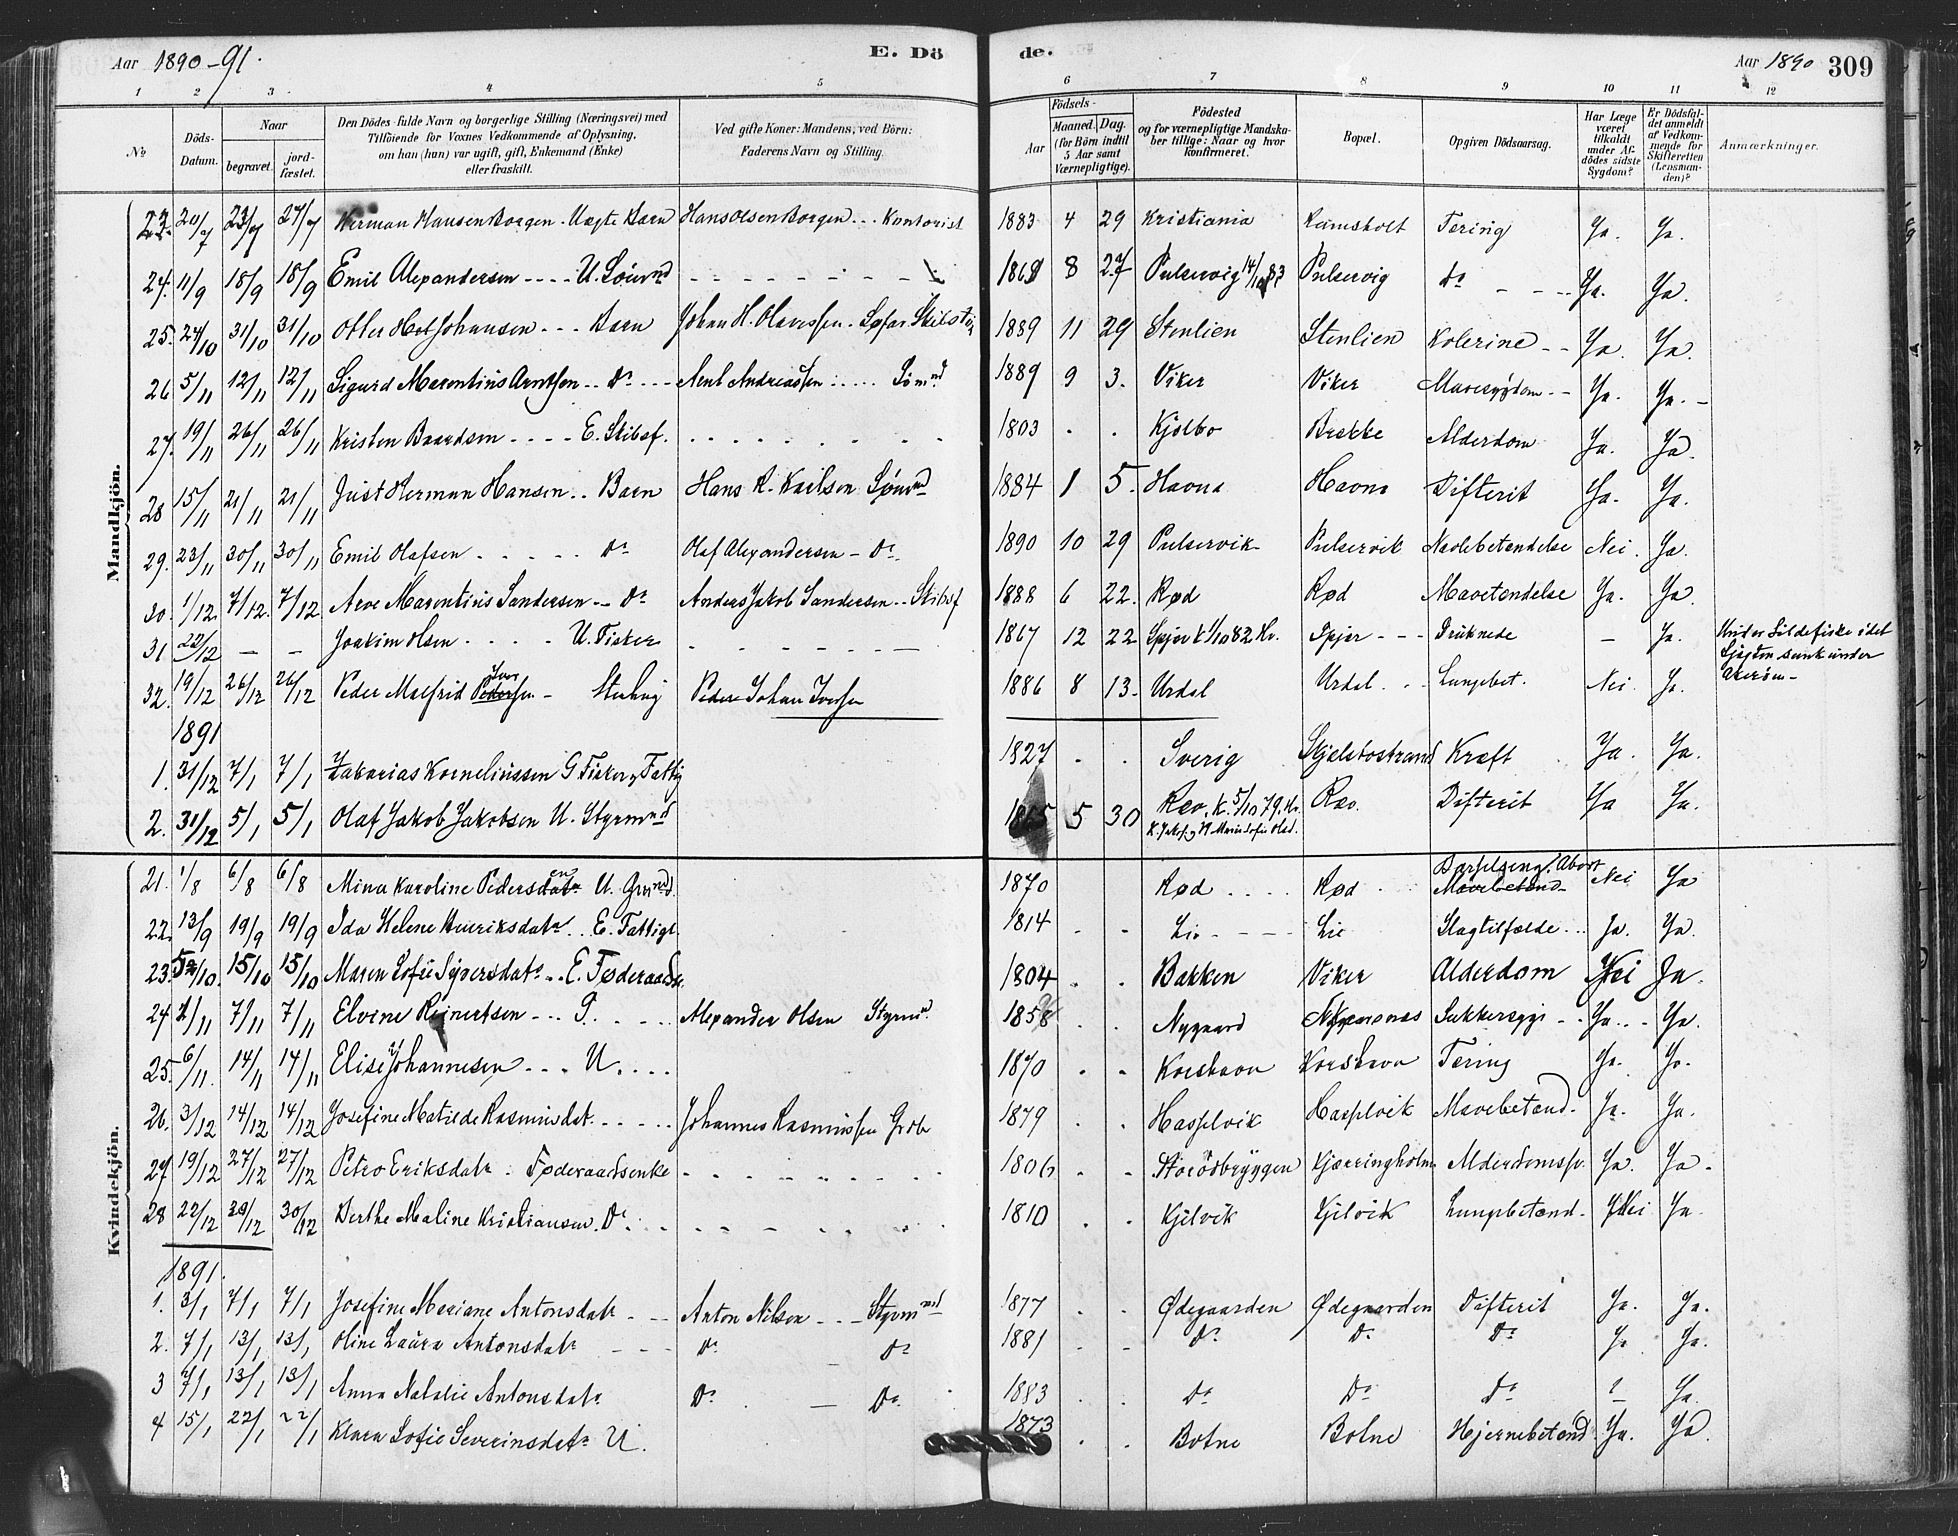 Aar 1890-91. E. Dö de. Aar 1890 309
1 2 3 4 5 6 7 8 9 10 11 12
No Döds-Datum. Naar begravet. jord-fæstet. Den Dödes fulde Navn og borgerlige Stilling (Næringsvei) med Tilföiende for Voxnes Vedkommende af Oplysning, om han (hun) var ugift, gift, Enkemand (Enke) eller fraskilt. Ved gifte Koner: Mandens, ved Börn: Faderens Navn og Stilling. Födsels- Aar Maaned. Dag. (for Börn indtil 5 Aar samt Værnepligtige). Födested og for værnepligtige Mandskaber tillige: Naar og hvor konfirmeret. Bopæl. Opgiven Dödsaarsag. Har Læge været tilkaldt under Afdödes sidste Sygdom? Er Dödsfaldet anmeldt af Vedkommende for Skifteretten (Lensmanden)? Anmærkninger.
Mandkjön.
23. 20/7 23/7 27/7 Herman Hansen Borgen. Uægte Barn Hans Olsen Borgen... Kontorist 1883 4 29 Kristiania Ramsholt Tering Ja. Ja.
24. 11/9 18/9 18/9 Emil Alexandersen .... U. Sömnd 1869 8 27 Pulservig 14/10 83 Pulservig Do Ja. Ja.
25. 24/10 31/10 31/10 Otter Johansen ... Barn Johan H. Olavessen. 1889 11 29 Stenlien Stenlien Kolerine Ja. Ja.
26 5/11 12/11 12/11 Sigurd Marentius Arntsen .. Do Arnt Andreassen .... Sömnd 1889 9 3. Viker Viker Mavesygdom Ja. Ja.
27. 19/11 26/11 26/11 Kristen Baardsen .... E. Skibsf. 1803 Kjölbo Brekke Alderdom Ja. Ja.
28 15/11 21/11 21/11 Just Herman Hansen .. Barn Hans R. Karlsen Sömnd 1884 1 5. Havna Havna Difterit Ja. Ja.
29. 23/11 30/11 30/11 Emil Olafsen ..... Do Olaf Alexandersen - Do 1890 10 29 Pulservik Pulservik Navlebetændelse Nei. Ja.
30. 1/12 7/12. 7/12 Arve Marentius Sandersen .. Do Anders Jakob Sandersen .. Skibsf 1888 6 22. Röd Röd Mavetendelse Ja. Ja.
31 22/12 - - Joakim Olsen .... U. Fisker 1867 12 22 Spjær k 1/10 82 Hv. Spjær Druknede - Ja. Under Sildefiske idet Sjægten sank under Akerøen
32. 19/12 26/12 26/12 Peder Malfrid Iversen Peder Johan Iversen 1886 8 13. Urdal Urdal Lungebet. Nei. Ja.
1891
1. 31/12 7/1 7/1 Zakarias Korneliussen G Fisker, Fattig 1827 Sverig Skjelsbostrand Kræft Ja. Ja.
2. 31/12 5/1 5/1 Olaf Jakob Jakobsen U. Styrmnd 5 30 Röv. k. 5/10 79. Hv. Röv. Difterit Ja Ja.
Kvindekjön.
21. 1/8 6/8 6/8 Mina Karoline Pedersen U. 1870 Röd Röd Barselseng/Abort Nei Ja
22. 13/9 19/9 19/9 Ida Helene Henriksdatr .. E. Fattigl. 1814 Lie Lie Slagtilfælde... Ja. Ja.
23. 5/10. 15/10 15/10 Maren Sofie Syversdatr ... E. Föderaads. 1804 Bakken Viker Alderdom Nei Ja.
24. 1/11 7/11 7/11 Elvine Reinertsen ... G. Alexander Olsen Styrmnd. 1858 Nygaard Sukkersyge Ja. Ja.
25. 6/11. 14/11 14/11 Elise Johannesen .... U. 1870 Korshavn Korshavn Tering Ja. Ja.
26. 3/12 14/12 14/12 Josefine Matilde Rasmusdat. Johannes Rasmussen Grdb 1879 Hasselvik Hasselvik Mavebetænd. Ja. Ja.
27. 19/12 27/12 27/12 Petro Eriksdatr . Föderaadsenke 1806 Storödbryggen Kjærringholm Alderdomssv. Ja. Ja.
28 22/12 29/12 30/12 Berthe Maline Kristiansen. Do. 1810 Kjilvik Kjilvik Lungebetænd. Nei Ja.
1891.
1. 3/1 7/1 7/1 Josefine Mariane Antonsdatr Anton Nilsen ... Styrmnd 1877 Ødegaarden Ødegaarden Difterit Ja. Ja.
2. 7/1 13/1 13/1 Oline Laura Antonsdatr Do Do 1881 Do Do. Do Ja Ja.
3 7/1 13/1 13/1 Anna Natalie Antonsdatr Do. Do. 1883 Do Do Do Ja.
4 15/1 22/1 22/1 Klara Sofie Severinsdatr U. 1873 Botne Botne Hjernebetænd Ja. Ja.